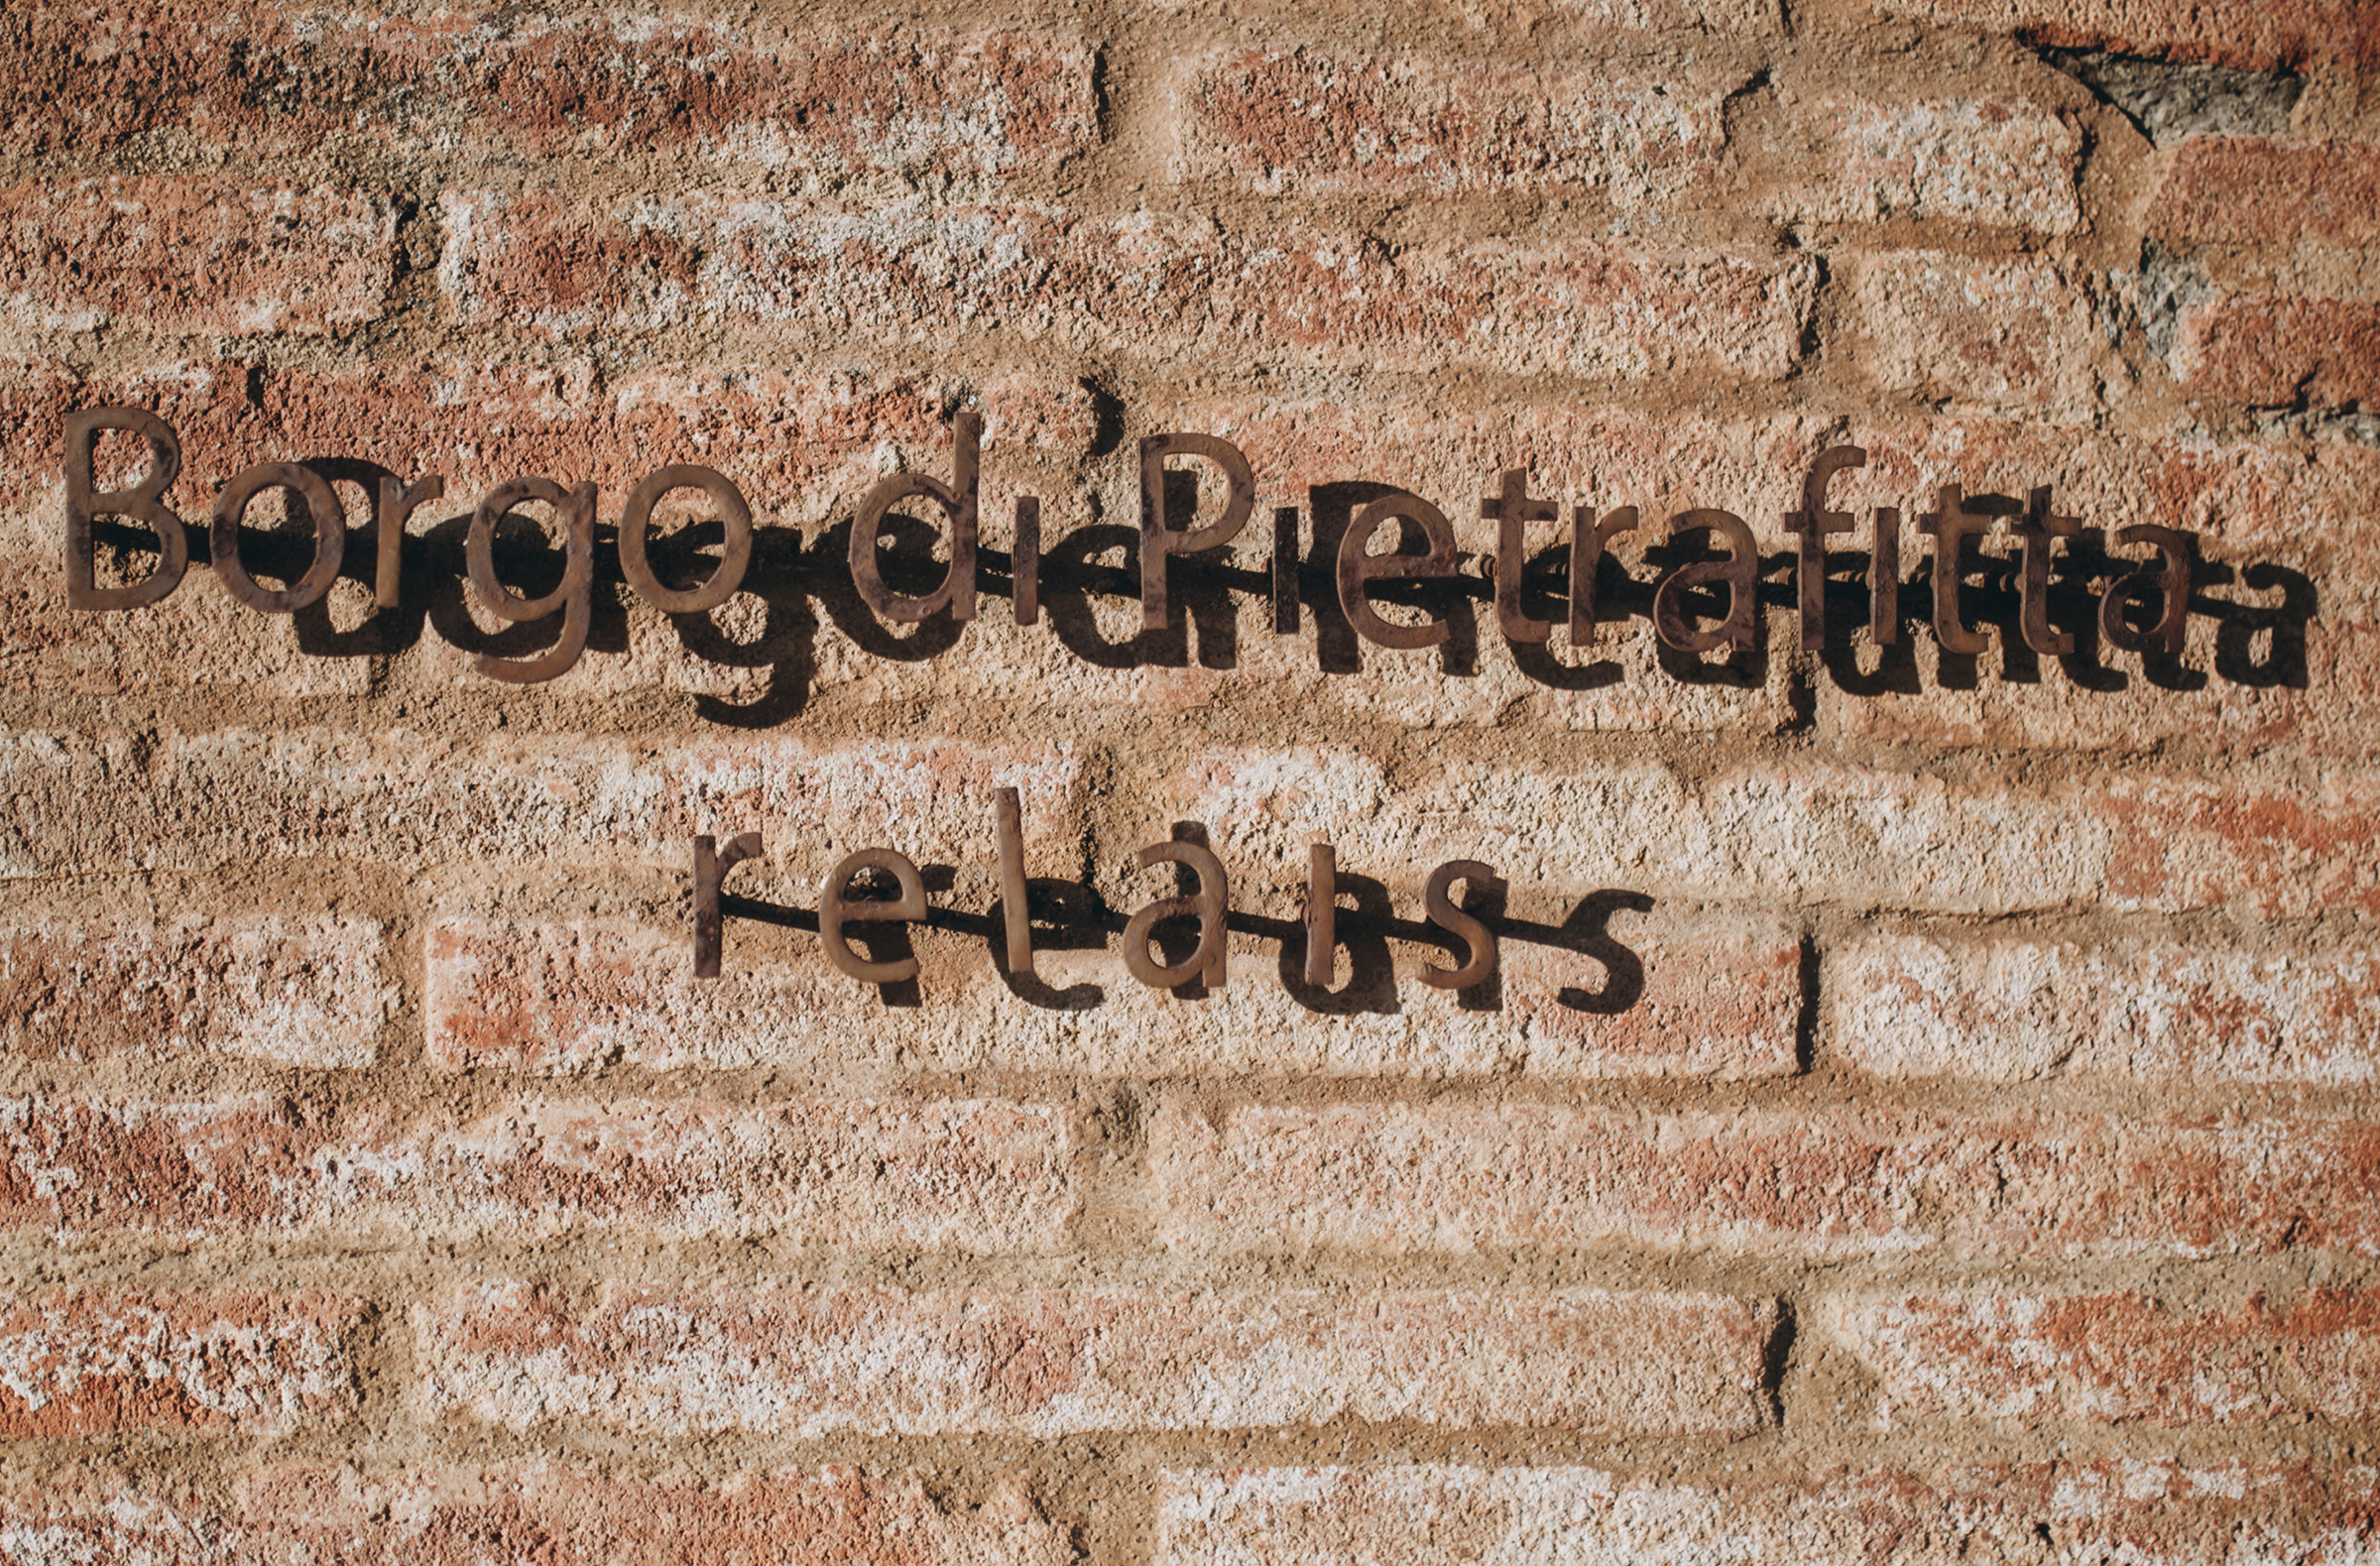 Borgo di Pietrafitta
relais